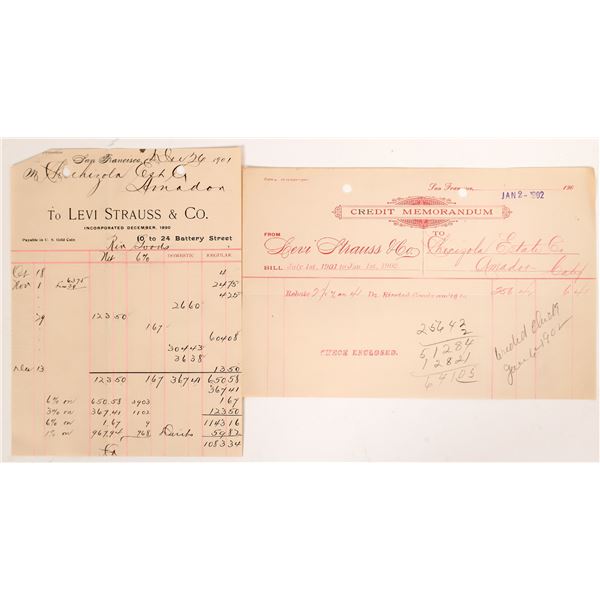 San Francisco, Dec 26 1901
M Chichizola Est. Co
Amador
To LEVI STRAUSS & CO.
INCORPORATED DECEMBER, 1890
Payable in U. S. Gold Coin
10 to 24 Battery Street
Riv Goods
Net 6% DOMESTIC REGULAR
Oct 18 4
Nov 1 6375 2475
425
2660
29 12350 167 60408
30443
3638
Dec 13 1350
12350 167 36741 65058
36741
6% on 650.58 3903 167
3% on 367.41 1102 12350
6% on 1.67 9 114316
1% on 967.94 968 Disct 5982
108334
San Francisco, 190
JAN 2-1902
CREDIT MEMORANDUM
FROM
Levi Strauss & Co
TO
Chicizola Estate Co
Amador Caly
BILL July 1st, 1901 to Jan 1st, 1902
Rebate 2½% on 41 Dz Riveted Goods 256 42 6 41
CHECK ENCLOSED.
25642
2
51284
12821
64105
Credited Check
Jan 6-1902